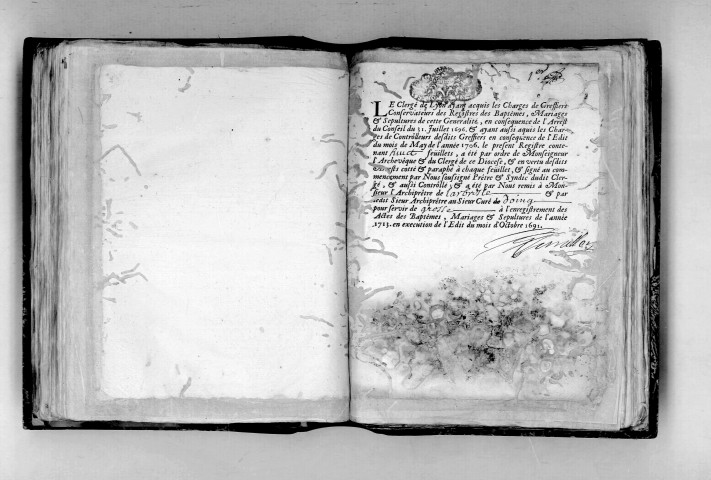 LE Clergé de Lyon ayant acquis les Charges de Greffiers
Conservateurs des Registres des Baptêmes, Mariages
& Sepultures de cette Generalité, en consequence de l'Arrest
du Conseil du 31. Juillet 1696. & ayant aussi aquis les Char-
ges de Contrôlleurs desdits Greffiers en consequence de l'Edit
du mois de May de l'année 1706. le present Registre conte-
nant huit feuillets, a été par ordre de Monseigneur
l'Archevêque & du Clergé de ce Diocese, & en vertu desdits
cotté & paraphé à chaque feüillet, & signé au com-
mencement par Nous soussigné Prêtre & Syndic dudit Cler-
gé, & aussi Contrôllé, & a été par Nous remis à Mon-
sieur l'Archiprêtre de & par
ledit Sieur Archiprêtre au Sieur Curé de doing
pour servir de grosse à l'enregistrement des
Actes des Baptêmes, Mariages & Sepultures de l'année
1713. en execution de l'Edit du mois d'Octobre 1691.